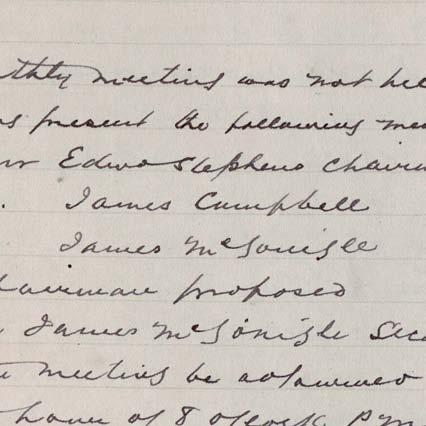 thly meeting was not hel
present the following mem
Edwd Stephens Chairm
James Campbell
James McGonigle
hairman proposed
James McGonigle Seco
meeting be adjourned
hour of 8 oClock P.M.